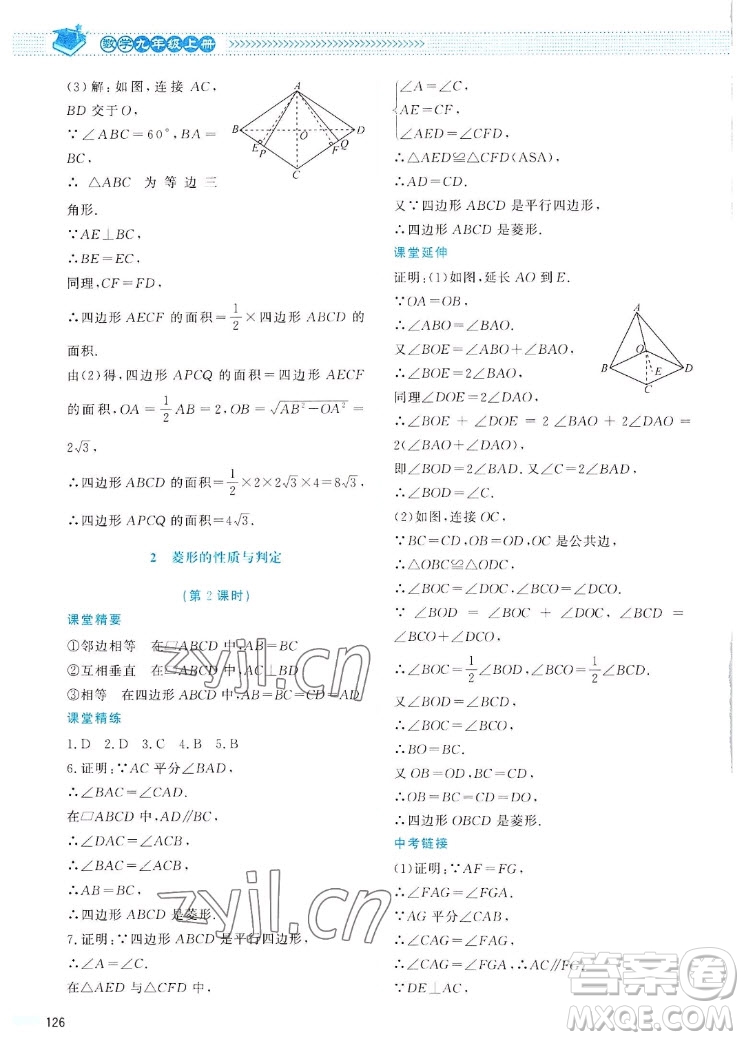 数学九年级上册
(3)解:如图,连接 AC,
BD 交于 O,
∵∠ABC=60°,BA=
BC,
∴ △ABC 为 等 边 三
角形.
∵AE⊥BC,
∴BE=EC,
同理,CF=FD,
∴四边形 AECF 的面积=1/2×四边形 ABCD 的
面积.
由(2)得,四边形 APCQ 的面积=四边形 AECF
的面积,OA=1/2AB=2,OB=√(AB²-OA²)=
2√3,
∴四边形 ABCD 的面积=1/2×2×2√3×4=8√3,
∴四边形 APCQ 的面积=4√3.
A
B
O
D
E
P
F
Q
C
2 菱形的性质与判定
(第 2 课时)
课堂精要
①邻边相等 在▱ABCD 中,AB=BC
②互相垂直 在▱ABCD 中,AC⊥BD
③相等 在四边形 ABCD 中,AB=BC=CD=AD
课堂精练
1.D 2.D 3.C 4.B 5.B
6.证明:∵AC 平分∠BAD,
∴∠BAC=∠DAC,
在▱ABCD 中,AD∥BC,
∴∠DAC=∠ACB,
∴∠BAC=∠ACB,
∴AB=BC,
∴四边形 ABCD 是菱形.
7.证明:∵四边形 ABCD 是平行四边形,
∴∠A=∠C,
在△AED 与△CFD 中,
126
∠A=∠C,
AE=CF,
∠AED=∠CFD,
∴△AED≌△CFD(ASA),
∴AD=CD,
又∵四边形 ABCD 是平行四边形,
∴四边形 ABCD 是菱形.
课堂延伸
证明:(1)如图,延长 AO 到 E.
∵OA=OB,
∴∠ABO=∠BAO.
又∵∠BOE=∠ABO+∠BAO,
∴∠BOE=2∠BAO,
同理∠DOE=2∠DAO,
∴∠BOE + ∠DOE = 2∠BAO + 2∠DAO =
2(∠BAO+∠DAO),
即∠BOD=2∠BAD.又∠C=2∠BAD,
∴∠BOD=∠C.
A
O
B
D
E
C
(2)如图,连接 OC,
∵BC=CD,OB=OD,OC 是公共边,
∴△OBC≌△ODC,
∴∠BOC=∠DOC,∠BCO=∠DCO,
∵∠BOD = ∠BOC + ∠DOC, ∠BCD =
∠BCO+∠DCO,
∴∠BOC=1/2∠BOD,∠BCO=1/2∠BCD,
又∠BOD=∠BCD,
∴∠BOC=∠BCO,
∴BO=BC.
又 OB=OD,BC=CD,
∴OB=BC=CD=DO,
∴四边形 OBCD 是菱形.
中考链接
(1)证明:∵AF=FG,
∴∠FAG=∠FGA.
∵AG 平分∠CAB,
∴∠CAG=∠FAG,
∴∠CAG=∠FGA,
∴AC∥FG.
∵DE⊥AC,
zyjl.cn
zyjl.cn
答案圈
MXQE.COM